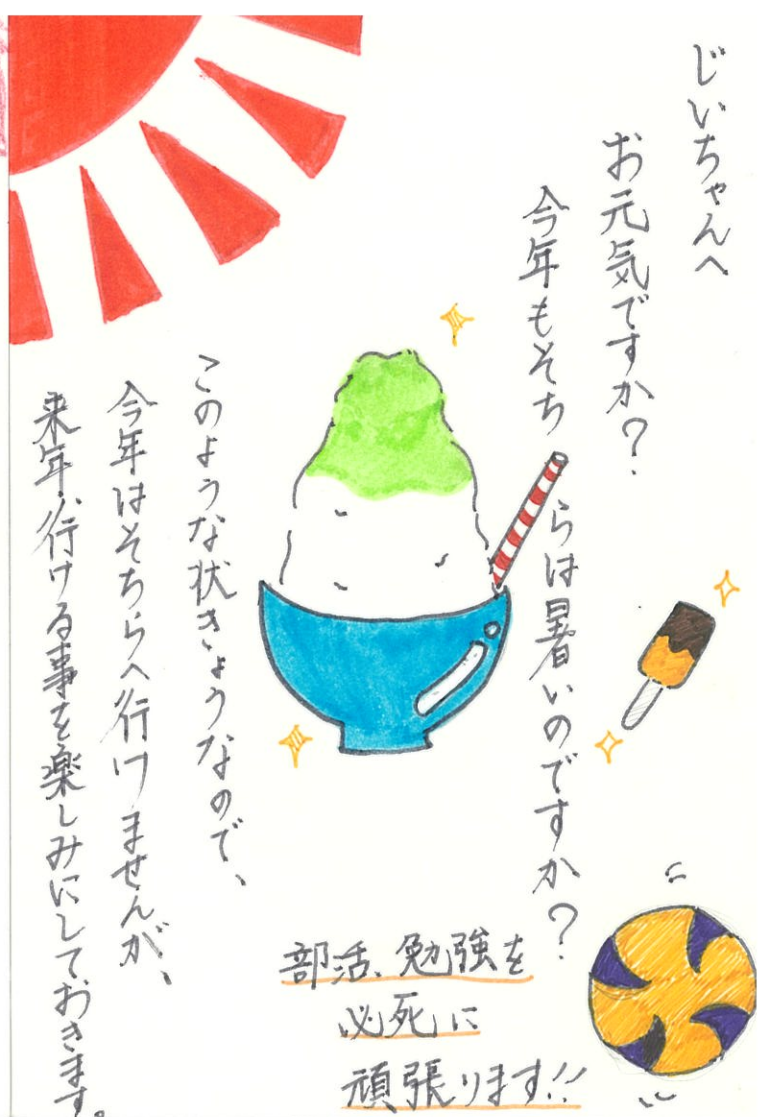 じいちゃんへ
お元気ですか？
今年もそちらは暑いのですか？
このような状きょうなので、
今年はそちらへ行けませんが、
来年、行ける事を楽しみにしておきます。
部活、勉強を
必死に
頑張ります!!